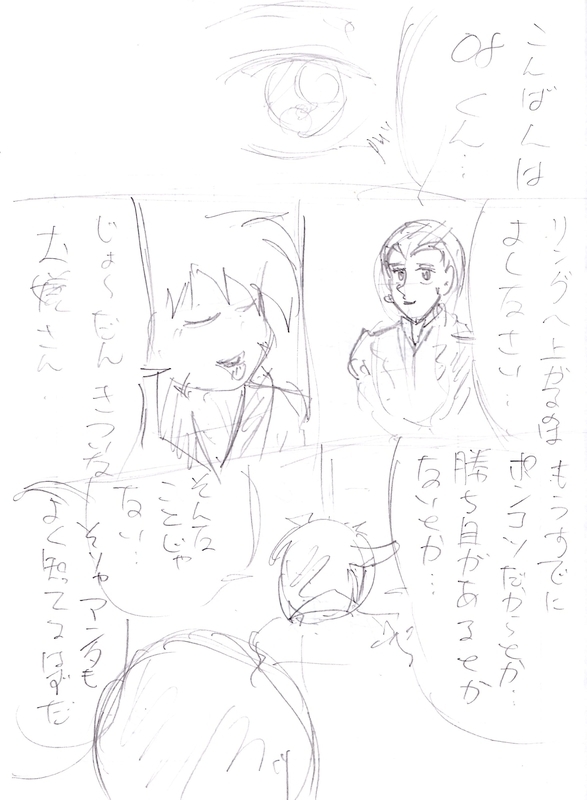 こんばんは
くん…
リングへ上がるのは
よしなさい…
じょ〜だん きついな
お嬢さん
もうすでに
ポンコツだからとか…
勝ち目があるとか
ないとか…
そんな
ことじゃ
ない…
そりゃ アンタも
よく知ってるはずだ